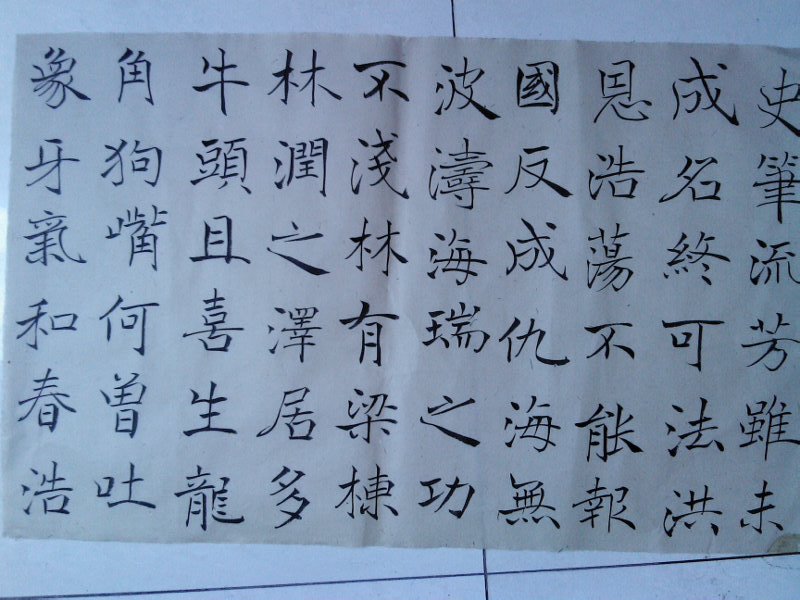 史筆流芳雖未
成名終可法洪
恩浩蕩不能報
國反成仇海無
波濤海瑞之功
不淺林有梁棟
林潤之澤居多
牛頭且喜生龍
角狗嘴何曽吐
象牙氣和春浩